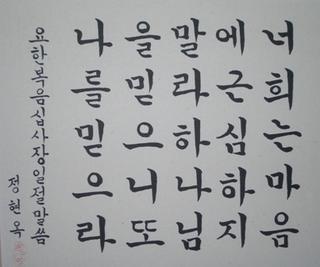 너희는마음
에근심하지
말라하나님
을믿으니또
나를믿으라
요한복음십사장일절말씀
정현욱